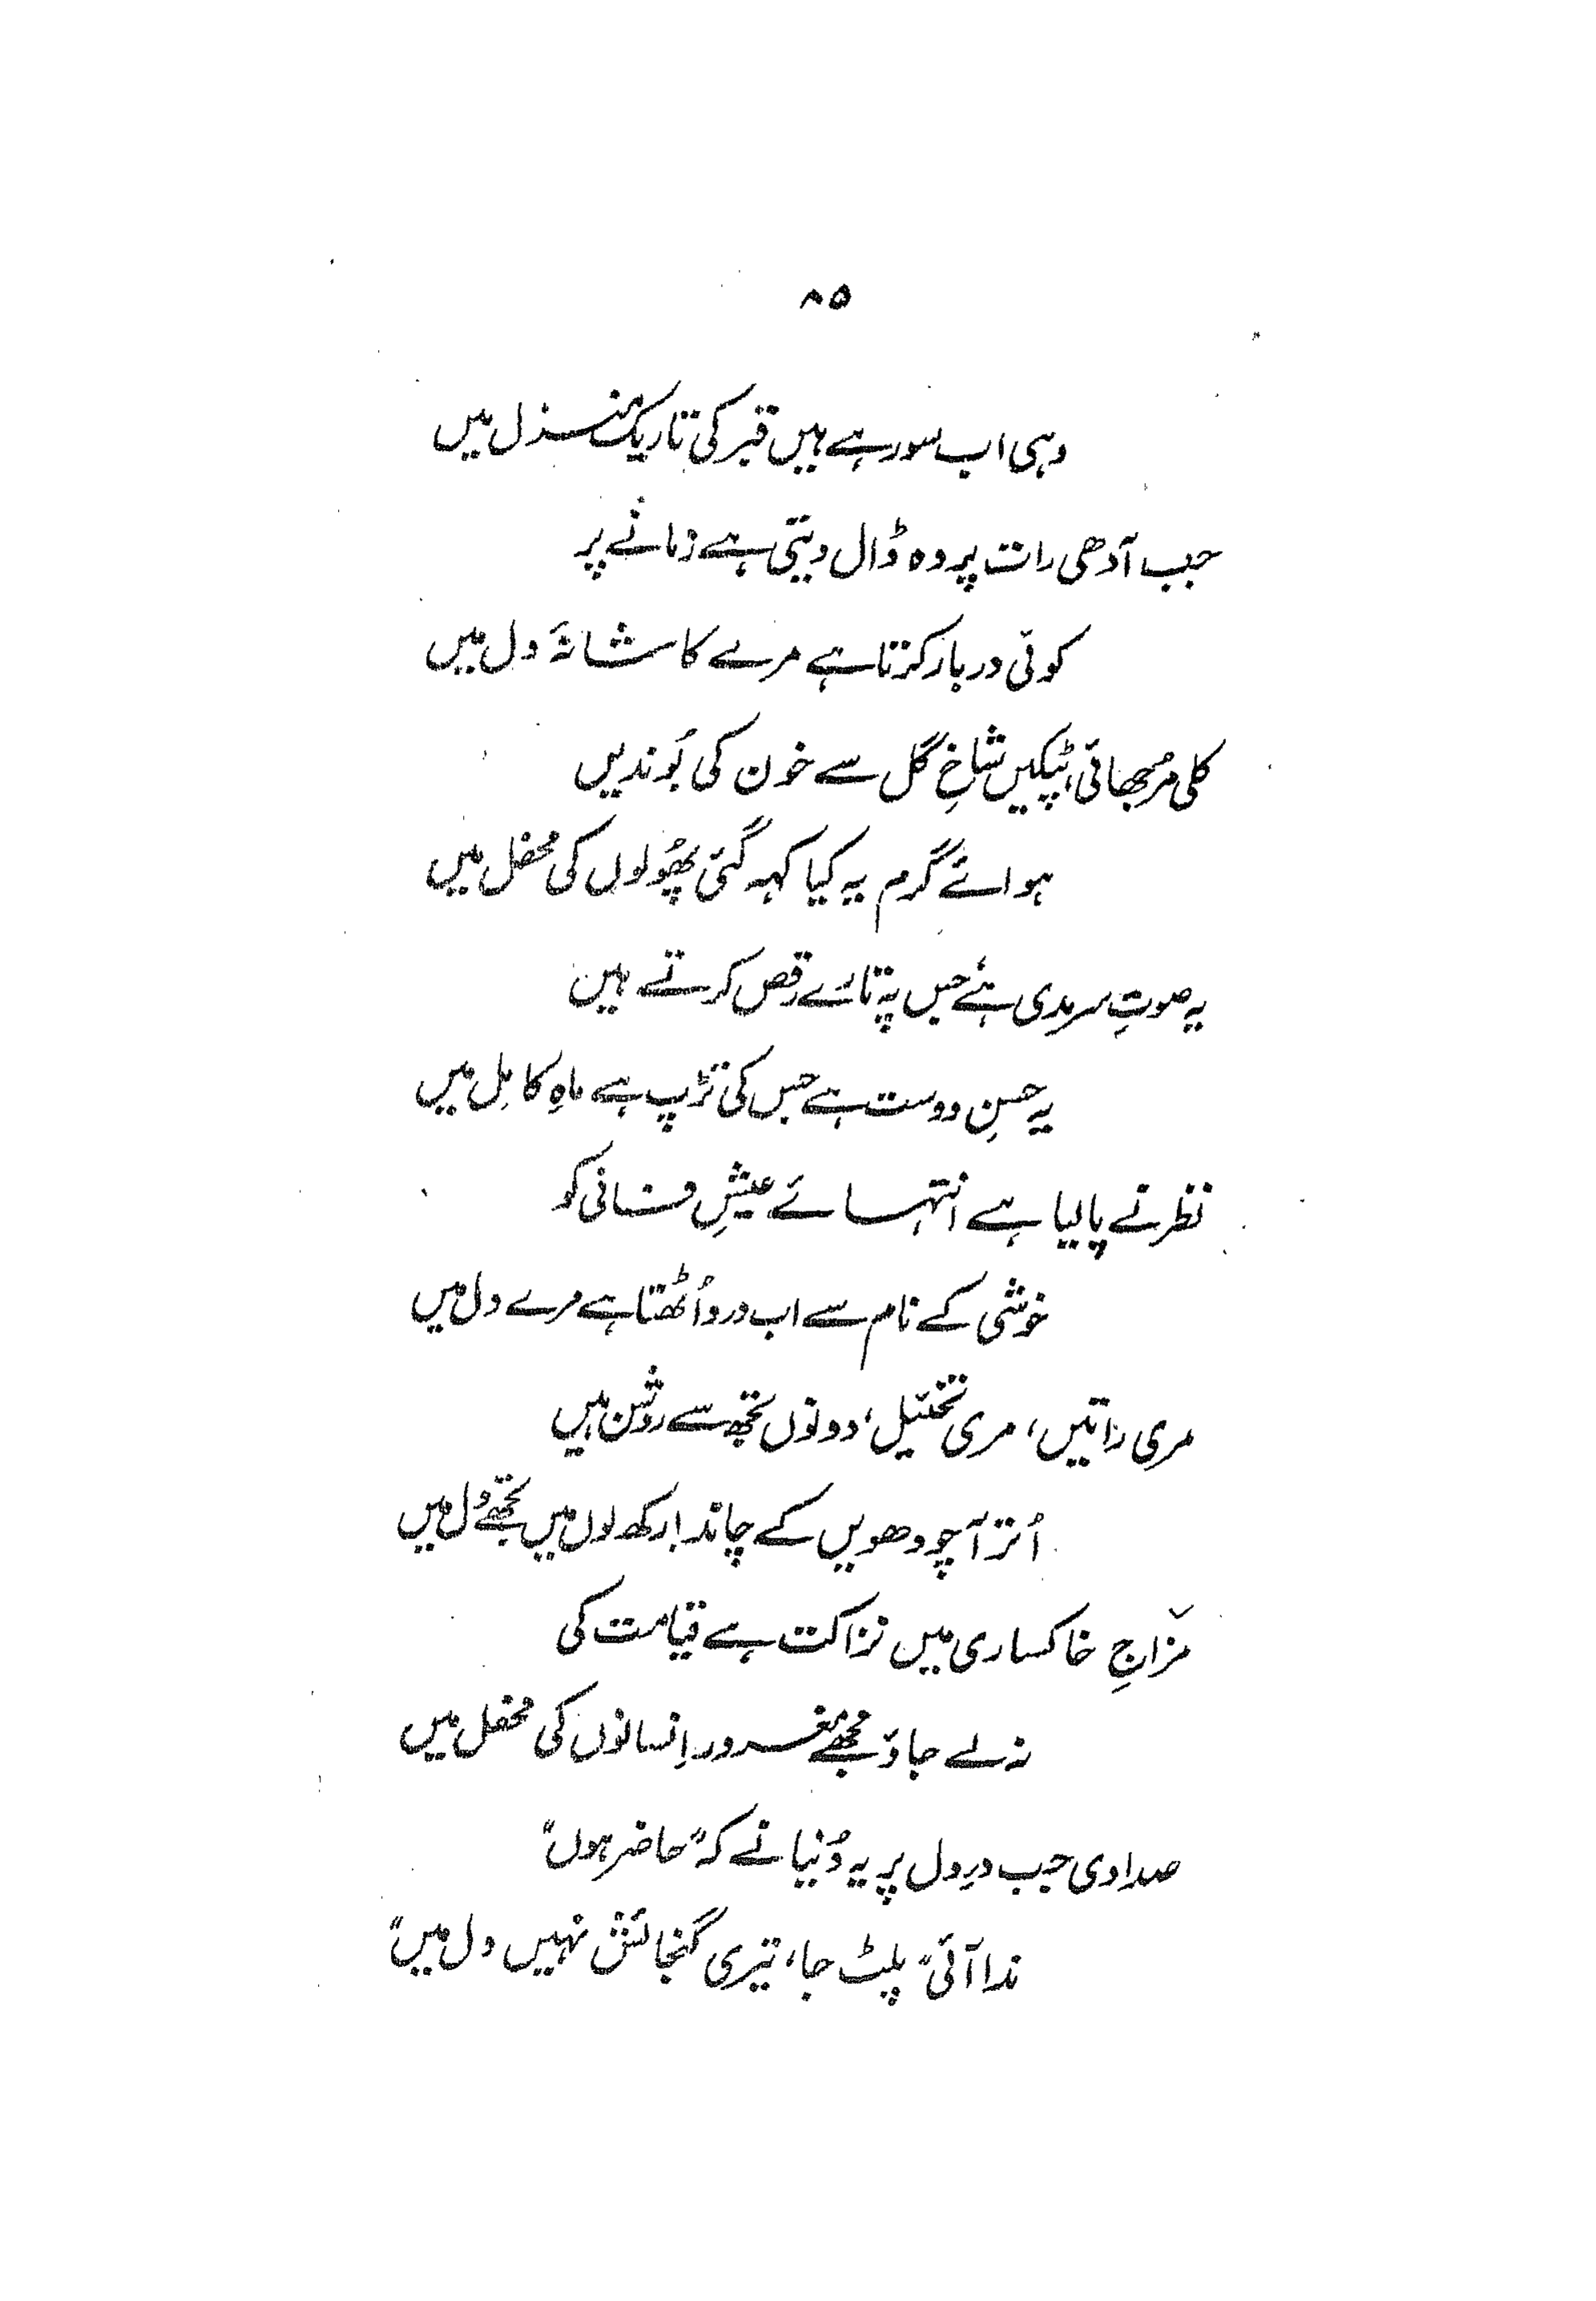 ۸۵
وہی اب سو رہے ہیں قبر کی تاریک منزل میں
جب آدھی رات پردہ ڈال دیتی ہے زمانے پر
کوئی دربار کرتا ہے مرے کاشانۂ دل میں
کلی مُرجھائی، ٹپکیں شاخِ گل سے خون کی بُوندیں
ہوائے گرم یہ کیا کہہ گئی پھُولوں کی محفل میں
یہ صوتِ سرمدی ہے جس پہ تارے رقص کرتے ہیں
یہ حسنِ دوست ہے جس کی تڑپ ہے ماہِ کامِل میں
نظر نے پا لیا ہے انتہائے عیشِ فانی کو
خوشی کے نام سے اب درد اُٹھتا ہے مرے دل میں
مری راتیں، مری تخئیل، دونوں تجھ سے روشن ہیں
اُتر آ چودھویں کے چاند! رکھ لوں میں تجھے دل میں
مزاجِ خاکساری میں نزاکت ہے قیامت کی
نہ لے جاؤ مجھے مغرور اِنسانوں کی محفل میں
صدا دی جب درِ دل پر یہ دُنیا نے کہ "حاضر ہوں"
ندا آئی "پلٹ جا، تیری گنجائش نہیں دل میں"